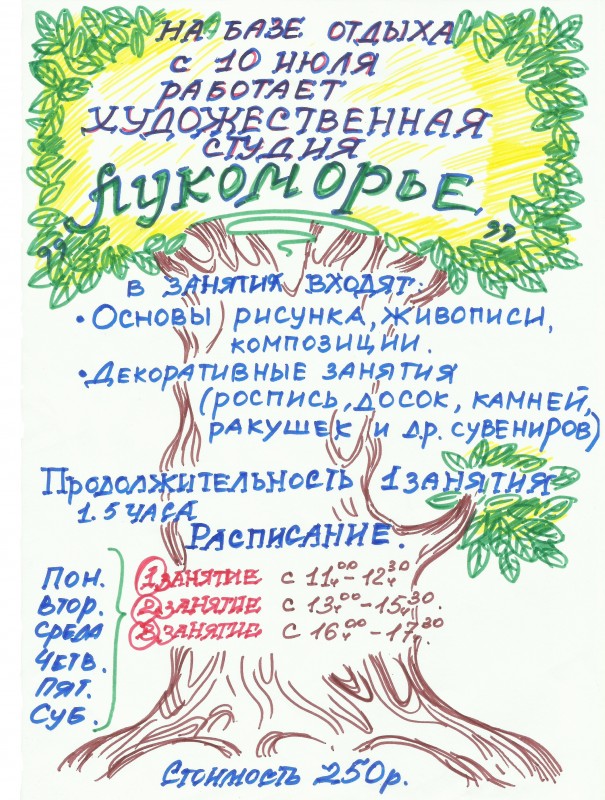 НА БАЗЕ ОТДЫХА
С 10 ИЮЛЯ
РАБОТАЕТ
ХУДОЖЕСТВЕННАЯ
СТУДИЯ
„ЛУКОМОРЬЕ”
В ЗАНЯТИЯ ВХОДЯТ:
• ОСНОВЫ РИСУНКА, ЖИВОПИСИ,
КОМПОЗИЦИИ.
• ДЕКОРАТИВНЫЕ ЗАНЯТИЯ
(РОСПИСЬ, ДОСОК, КАМНЕЙ,
РАКУШЕК И ДР. СУВЕНИРОВ)
ПРОДОЛЖИТЕЛЬНОСТЬ 1 ЗАНЯТИЯ
1.5 ЧАСА
РАСПИСАНИЕ.
ПОН.
ВТОР.
СРЕДА
ЧЕТВ.
ПЯТ.
СУБ.
1. ЗАНЯТИЕ С 11ч00 - 12ч30
2. ЗАНЯТИЕ С 13ч00 - 15ч30.
3. ЗАНЯТИЕ С 16ч00 - 17ч30
СТОИМОСТЬ 250р.